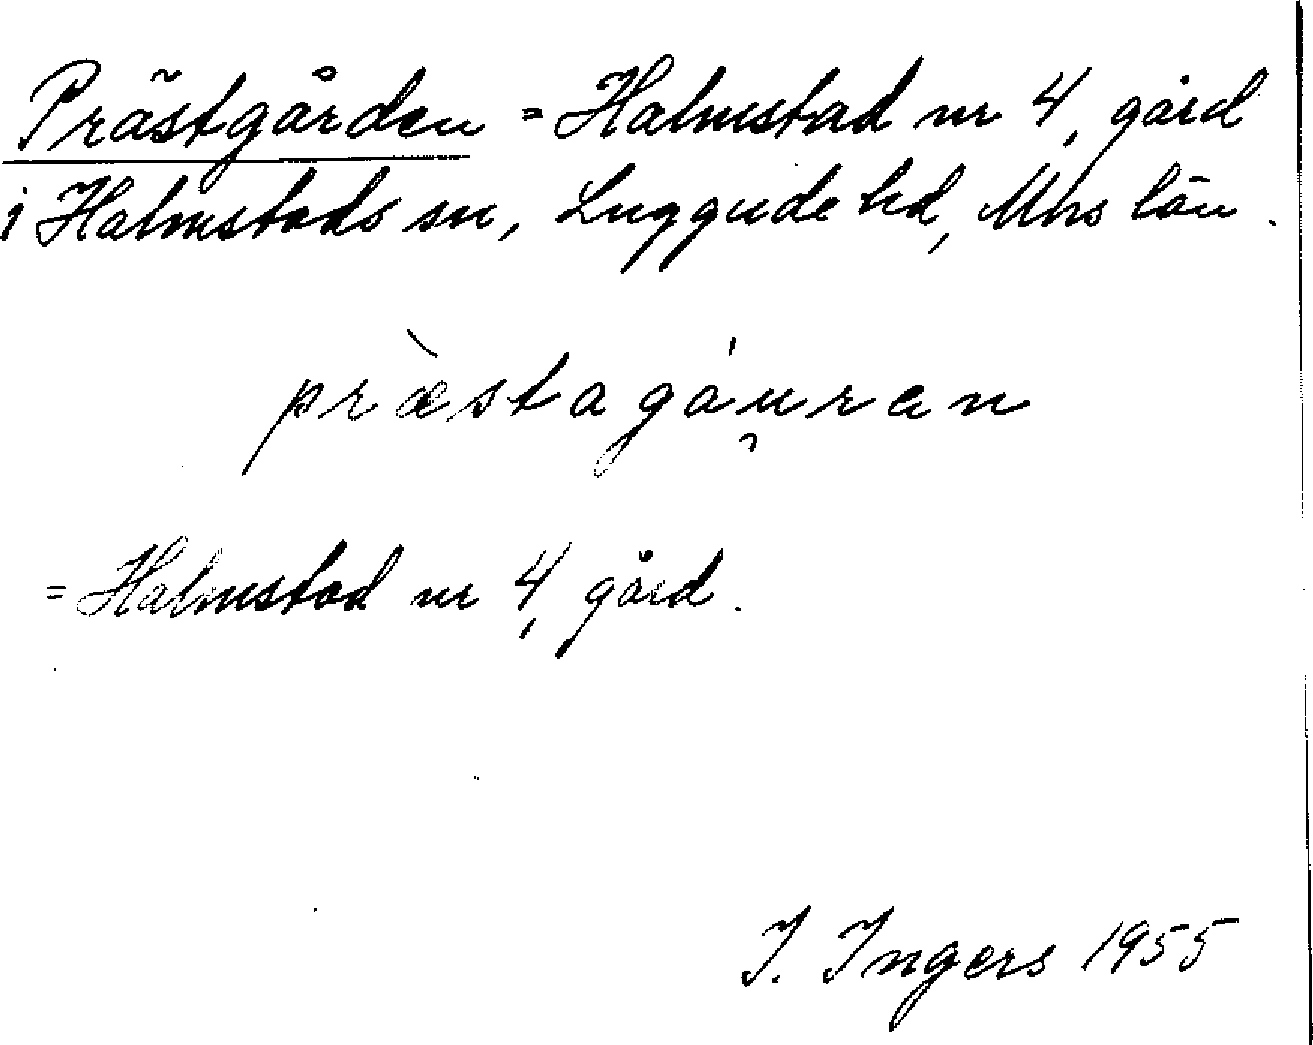 Prästgården = Halmstad nr 4, gård
i Halmstads sn, Luggude hd, Mhs län.
præ̀stagáu̯ran
= Halmstad nr 4, gård.
I. Ingers 1955